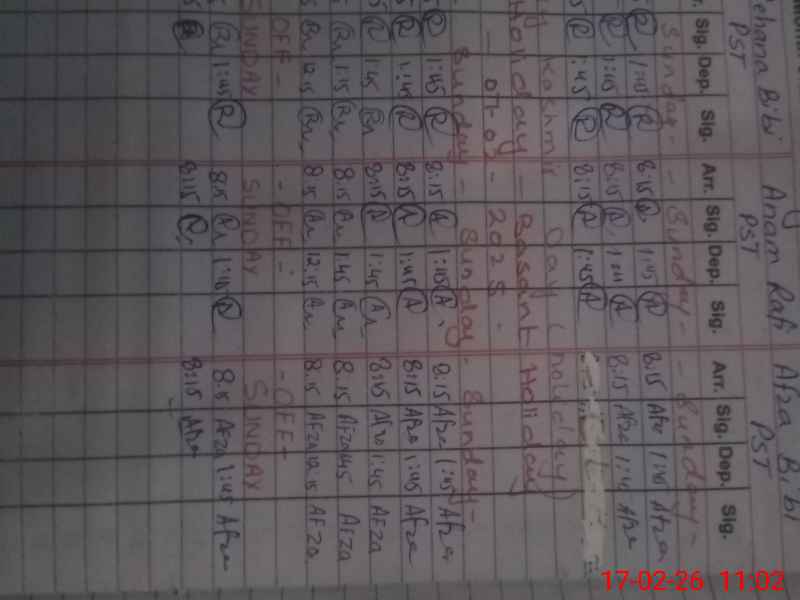 Bibi Anam Rafi Afza Bibi
PST PST PST
Sig. Dep. Sig. Arr. Sig. Dep. Sig. Arr. Sig. Dep. Sig.
Sunday - - Sunday - - Sunday -
R 1:45 R 8:15 A 1:45 A 8:15 Afza 1:45 Afza
R 1:45 R 8:15 A 1:45 A 8:15 Afza 1:45 Afza
R 1:45 R 8:15 A 1:45 A
Kashmir Day (holiday)
Holiday - Basant Holiday
2025 -
Sunday - Sunday - Sunday -
R 1:45 R 8:15 A 1:45 A 8:15 Afza 1:45 Afza
R 1:45 R 8:15 A 1:45 A 8:15 Afza 1:45 Afza
R 1:45 8:15 A 1:45 8:15 AFZA 1:45 AFZA
8:15 1:45 8:15 AFZA 1:45 AFZA
12:15 8:15 12:15 8:15 AFZA 12:15 AFZA
OFF - - OFF - - OFF -
SUNDAY SUNDAY SUNDAY
1:45 R 8:15 1:45 R 8:15 AFZA 1:45 Afza
8:15 R 8:15 Afza
17-02-26 11:02